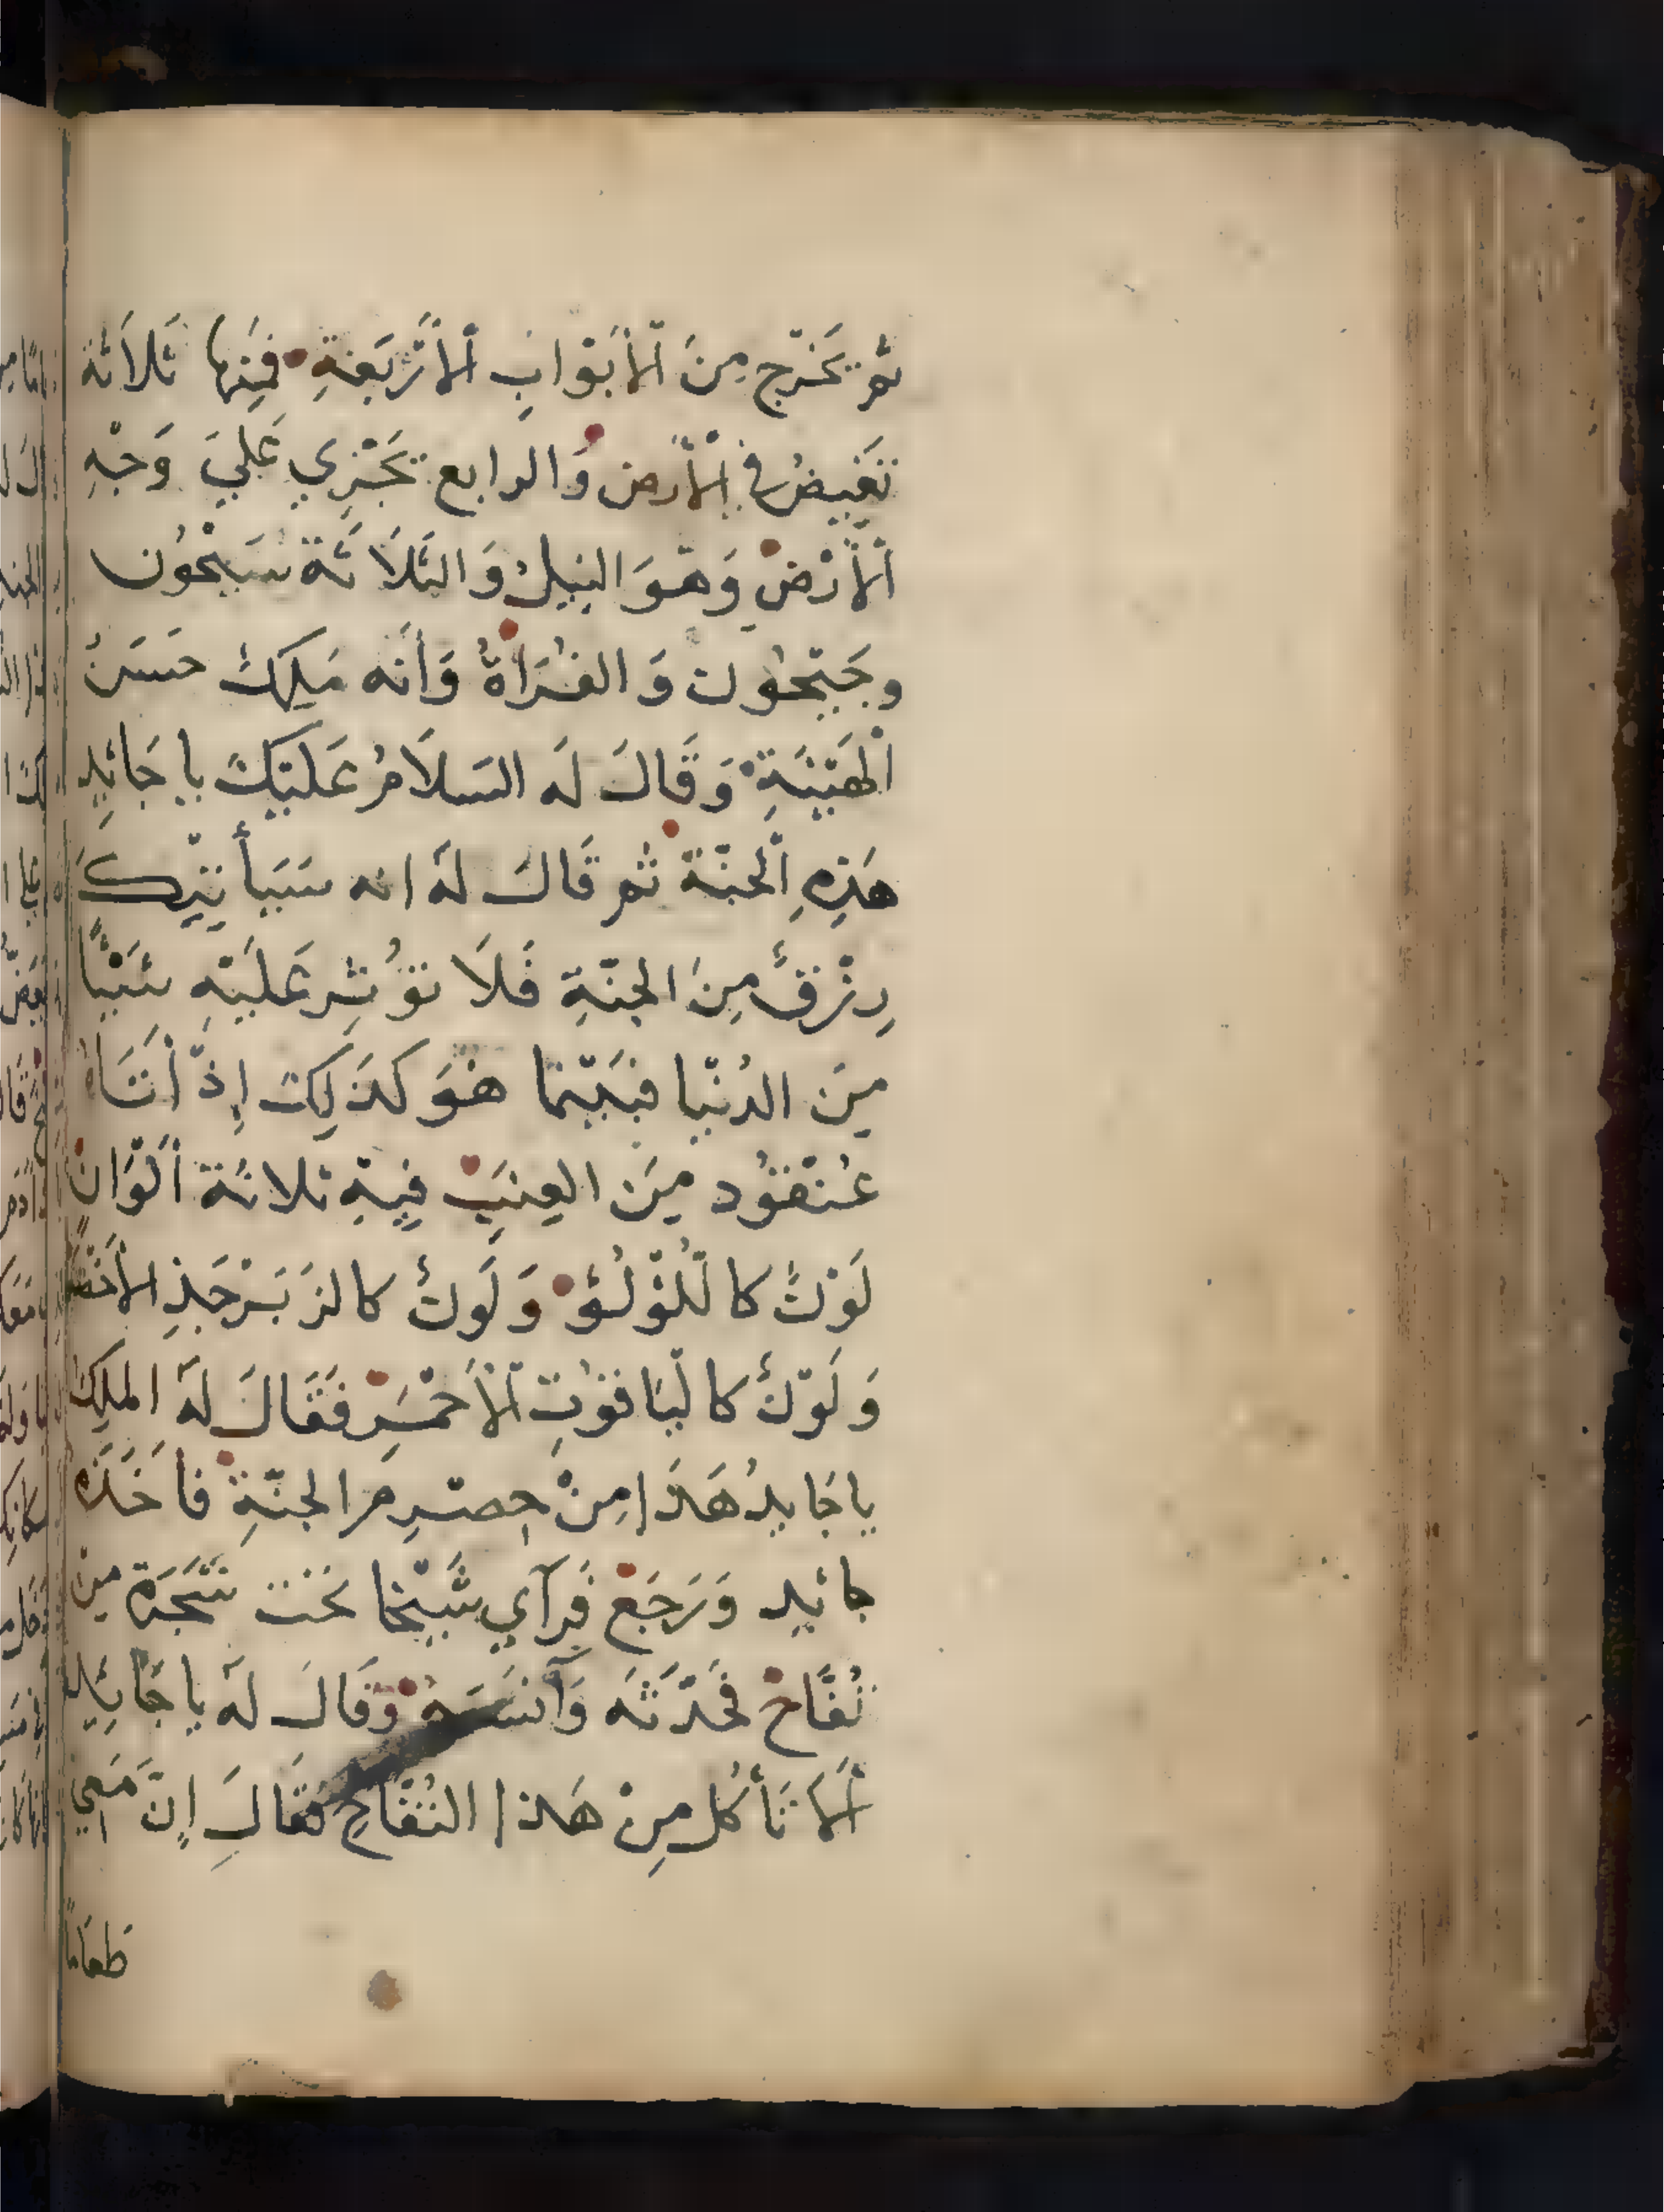 ثم يَخْرُج مِنَ اْلأَبْوَابِ اْلأَرْبَعَةِ فَمِنْها ثَلاَثَة
تَغِيضُ في اْلأَرض وَالرابع يَجْرِي عَليَ وَجْهِ
اْلأَرْضْ وَهْوَ النِيلْ وَالثَلاَثَة سَيْحُون
وجَيْحُون وَالفُرَاةُ وَأَنَه مَلِكٌ حَسَنْ
اْلهَيْئَةِ وَقَالَ لَه السَلاَمُ عَلَيْكَ يا جَائِد
هَذِهِ اْلجَنّة ثم قَالَ لَهَ انه سَيَأتِيِكَ
رِزْقٌ مِنَ الجَنّةِ فَلاَ تؤُثِر عَلَيْهِ شَيْئًا
مِنَ الدُنْيا فبَيْنما هُوَ كَذَلِكَ اِذْ أَتَاهُ
عُنْقُود مِنَ العِنَبِ فِيهِ ثلاثَة أَلْوَانْ
لَوْنٌ كاللُؤْلُؤ وَلَونٌ كالزَبَرْجَدِ الأَخْضَر
وَلَوْنٌ كاليَاقوُتِ اْلأَحْمَر فَقَالَ لَهَ الملِك
يا جَايدُ هَذَا مِنْ حِصْرِم الجنّةِ فأَخَذَه
جائِد وَرَجَعْ فَرَآي شَيْخا تَحْت شَجَرَة مِنْ
تُفَّاحْ فَحَدّثَه وَآنَسَهُ وَقَالَ لَهَ يا جَائِد
أَلاَ تَأْكُل مِنْ هَذا التُفّاحِ فَقَالَ اِنّ مَعِي
طعَاماً